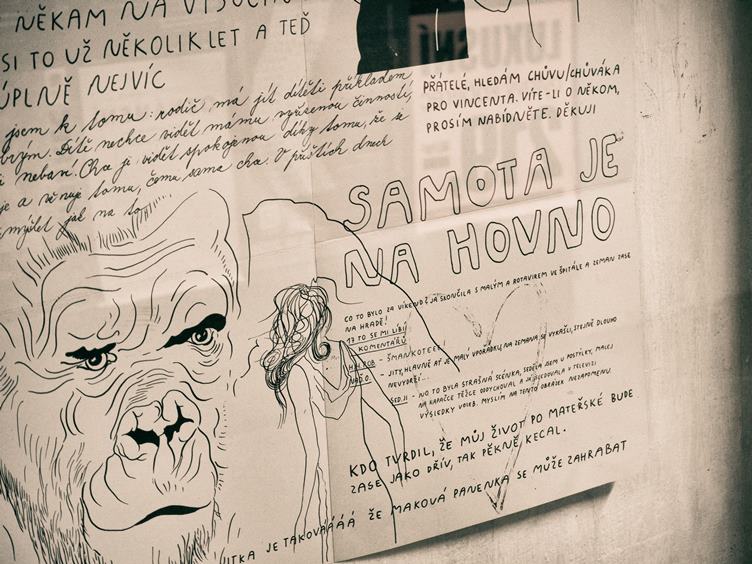 NĚKAM NA VYSOČIN
SI TO UŽ NĚKOLIK LET A TEĎ
ÚPLNĚ NEJVÍC
jsem k tomu: rodič má jít dítěti příkladem
Dítě nechce vidět mámu vyřízenou činností,
nebaví. Chce ji vidět spokojenou díky tomu, že se
je a věnuje tomu, čemu sama chce. V příštích dnech
myslet jak na to
LUXUSNÍ
PŘÁTELÉ, HLEDÁM CHŮVU/CHŮVÁKA
PRO VINCENTA. VÍTE-LI O NĚKOM,
PROSÍM NABÍDNĚTE. DĚKUJI
SAMOTA JE
NA HOVNO
CO TO BYLO ZA VÍKEND? JÁ SKONČILA S MALÝM A ROTAVIREM VE ŠPITÁLE A ZEMAN ZASE
NA HRADĚ!
17 TO SE MI LÍBÍ
KOMENTÁŘŮ
- ŠMANKOTE!
- JITY, HLAVNĚ AŤ JE MALÝ V POŘÁDKU, NA ZEMANA SE VYKAŠLI, STEJNĚ DLOUHO
NEVYDRŽÍ...
- NO TO BYLA STRAŠNÁ SCÉNKA, SEDĚLA JSEM U POSTÝLKY, MALEJ
NA KAPAČCE TĚŽCE ODDYCHOVAL A JÁ SLEDOVALA V TELEVIZI
VÝSLEDKY VOLEB. MYSLÍM NA TENTO OBRÁZEK NEZAPOMENU.
KDO TVRDIL, ŽE MŮJ ŽIVOT PO MATEŘSKÉ BUDE
ZASE JAKO DŘÍV, TAK PĚKNĚ KECAL.
JITKA JE TAKOVÁÁÁÁ ŽE MAKOVÁ PANENKA SE MŮŽE ZAHRABAT